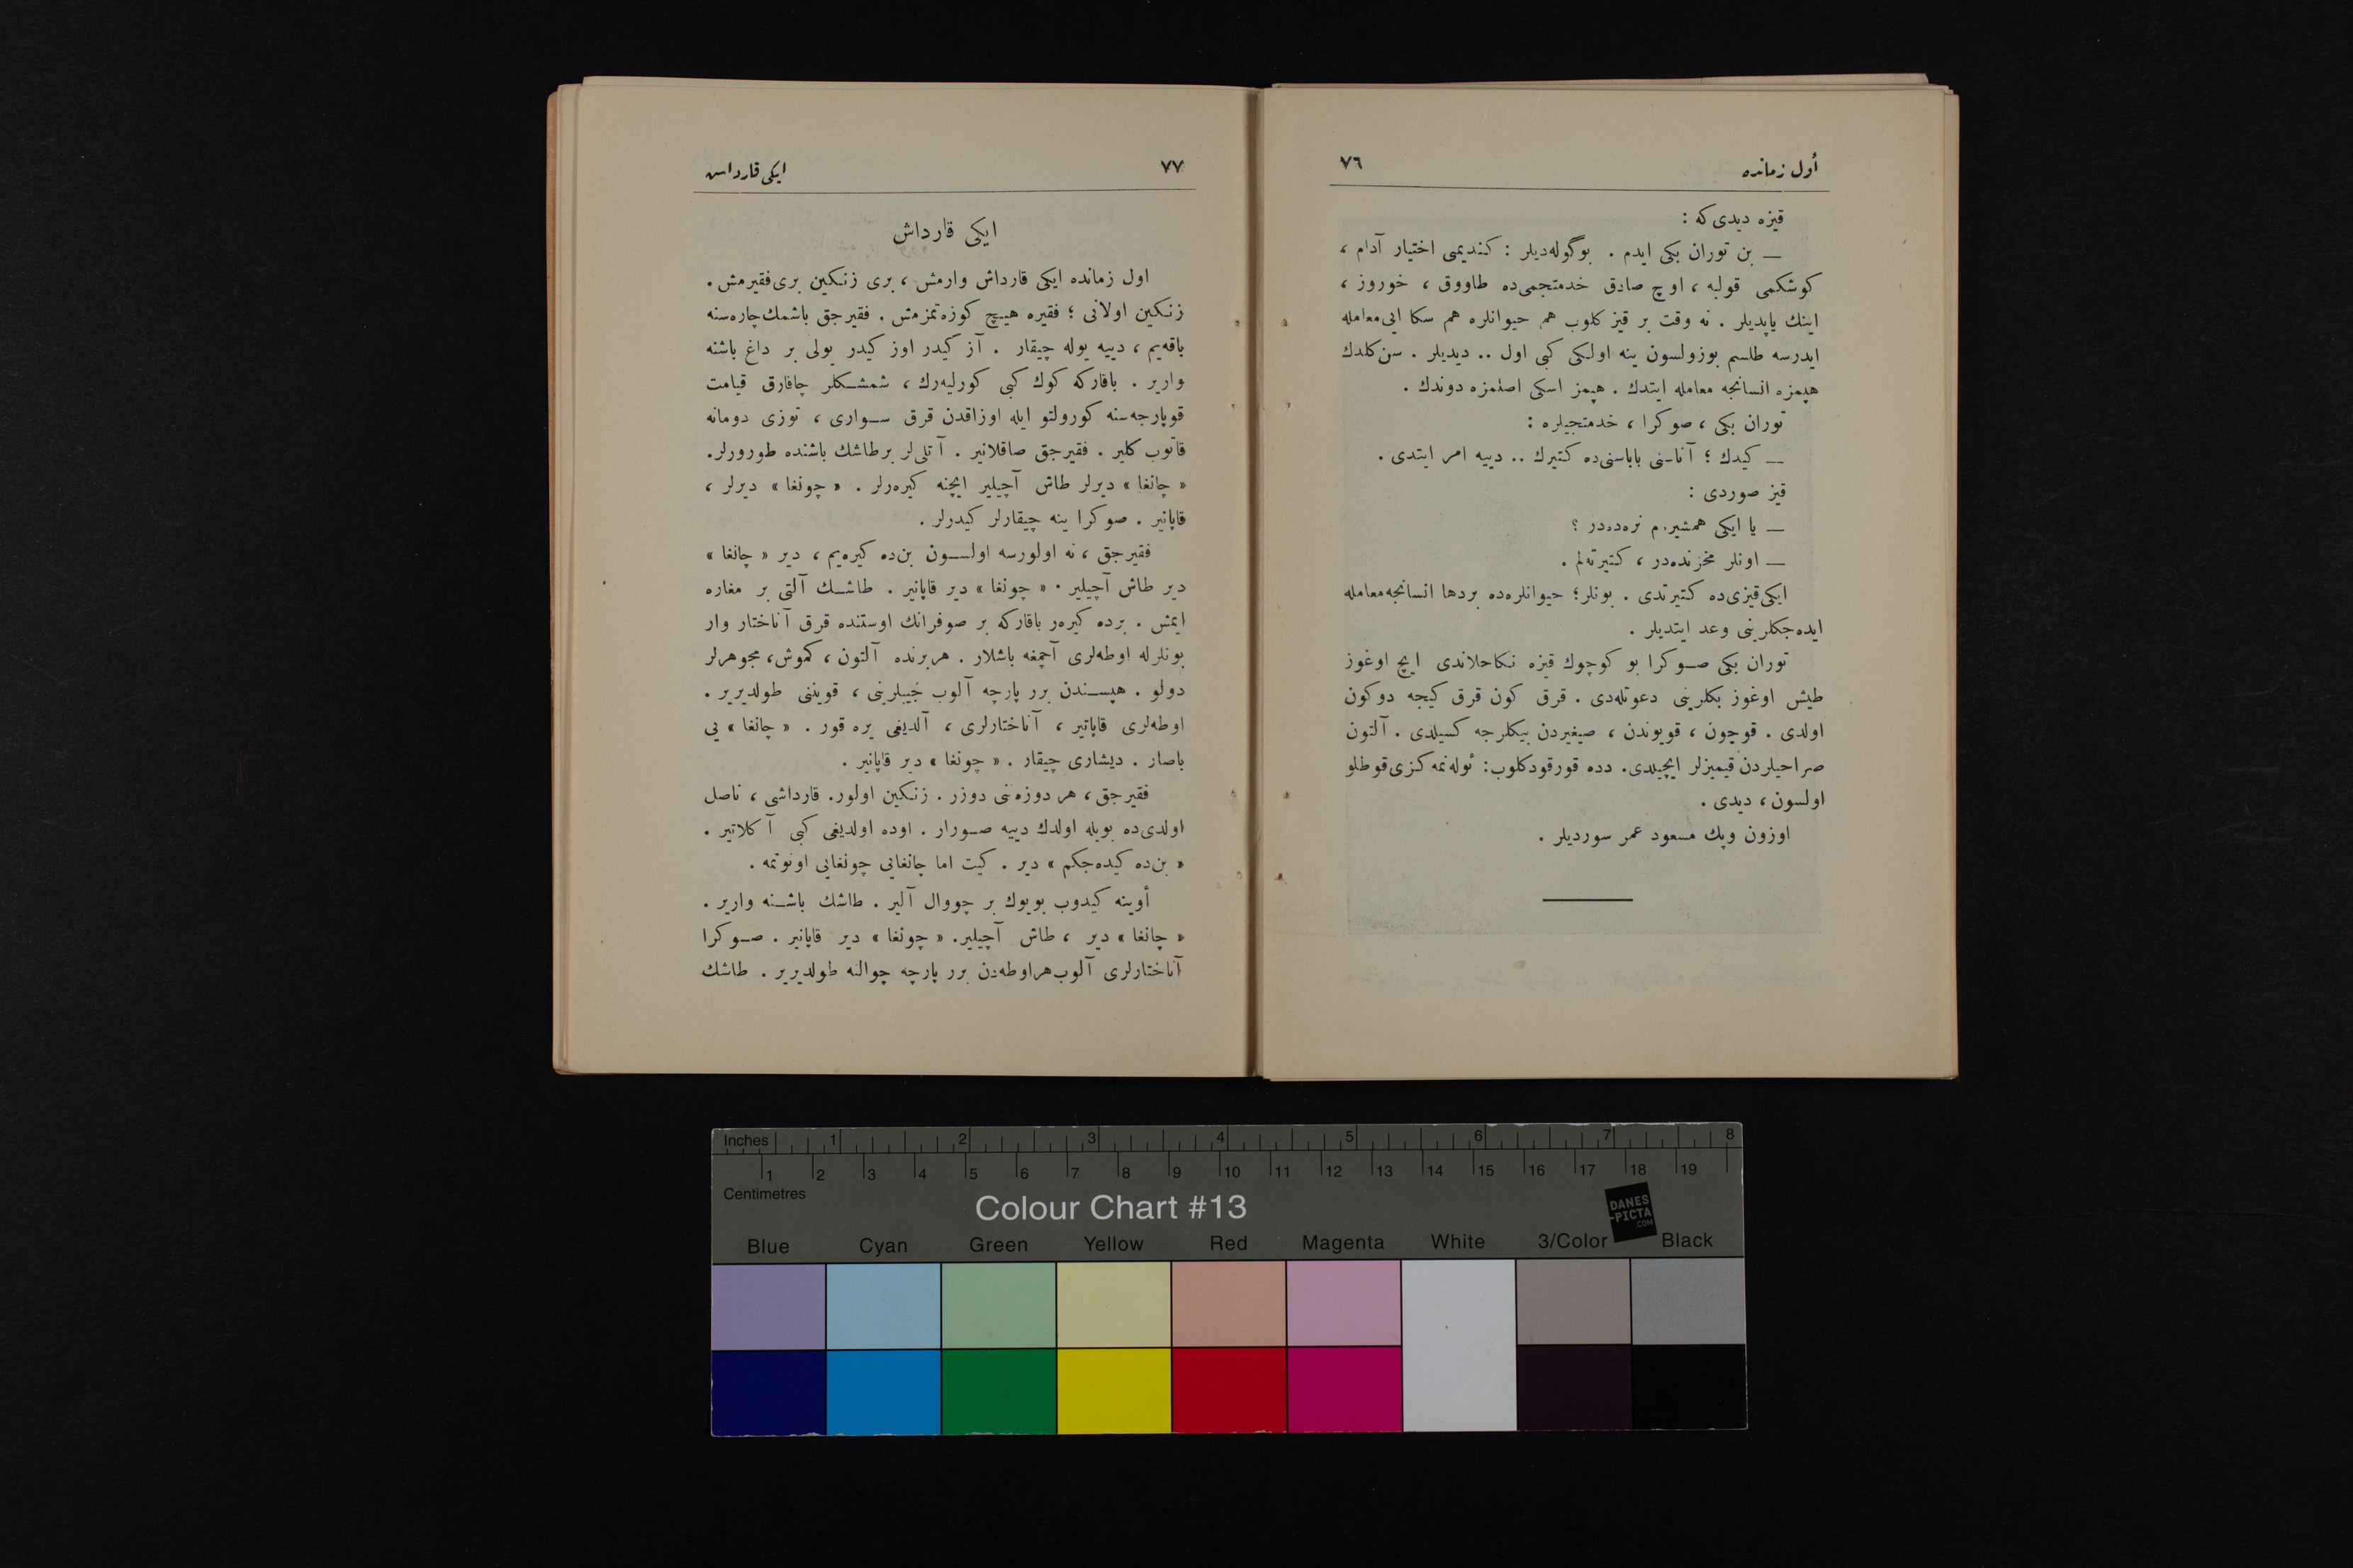 أول زمانده ٧٦
قيزه ديدی‌كه :
— بن توران بكی ايدم . بوگوله‌ديلر : كنديمی اختيار آدام ،
كوشكمی قولبه ، اوچ صادق خدمتجمی‌ده طاووق ، خوروز ،
اينك ياپديلر . نه وقت بر قيز كلوب هم حيوانلره هم سكا ايی‌معامله
ايدرسه طلسم بوزولسون ينه اولكی كبی اول .. ديديلر . سن‌كلدك
هپمزه انسانجه معامله ايتدك . هپمز اسكی اصلمزه دوندك .
توران بكی ، صوكرا ، خدمتجيلره :
— كيدك ؛ آناسنی باباسنی‌ده كتيرك .. دييه امر ايتدی .
قيز صوردی :
— يا ايكی همشيره‌م نره‌ده‌در ؟
— اونلر مخزنده‌در ، كتيرته‌لم .
ايكی‌قيزی‌ده كتيرتدی . بونلر؛ حيوانلره‌ده بردها انسانجه‌معامله
ايده‌جكلرينی وعد ايتديلر .
توران بكی صوكرا بو كوچوك قيزه نكاحلاندی ايچ اوغوز
طيش اوغوز بكلرينی دعوتله‌دی . قرق كون قرق كيجه دوكون
اولدی . قوچون ، قويوندن ، صيغيردن بيكلرجه كسيلدی . آلتون
صراحيلردن قيميزلر ايچيلدی. دده قورقودكلوب: ئوله‌نمه‌كزی‌قوطلو
اولسون ، ديدی .
اوزون وپك مسعود عمر سورديلر .
٧٧ ايكی قارداس
ايكی قارداش
اول زمانده ايكی قارداش وارمش ، بری زنكين بری‌فقيرمش .
زنكين اولانی ؛ فقيره هيچ كوزه‌تمزمش . فقيرجق باشمك‌چاره‌سنه
باقه‌يم ، دييه يوله چيقار . آز كيدر اوز كيدر يولی بر داغ باشنه
وارير . باقاركه كوك كبی كورليه‌رك ، شمشكلر چاقارق قيامت
قوپارجه‌سنه كورولتو ايله اوزاقدن قرق سواری ، توزی دومانه
قاتوب كلير . فقيرجق صاقلانير . آتلی‌لر برطاشك باشنده طورورلر.
« چانغا » ديرلر طاش آچيلير ايچنه كيره‌رلر . « چونغا » ديرلر ،
قاپانير . صوكرا ينه چيقارلر كيدرلر .
فقيرجق ، نه اولورسه اولسون بن‌ده كيره‌يم ، دير « چانغا »
دير طاش آچيلير . « چونغا » دير قاپانير . طاشك آلتی بر مغاره
ايمش . برده كيره‌ر باقاركه بر صوفرانك اوستنده قرق آناختار وار
بونلرله اوطه‌لری آچمغه باشلار . هربرنده آلتون ، كموش، مجوهرلر
دولو . هپسندن برر پارچه آلوب جيبلرينی ، قويننی طولديرير .
اوطه‌لری قاپاتير ، آناختارلری ، آلديغی يره قور . « چانغا » يی
باصار . ديشاری چيقار . « چونغا » دير قاپانير .
فقيرجق ، هر دوزه‌نی دوزر . زنكين اولور. قارداشی ، ناصل
اولدی‌ده بويله اولدك دييه صورار . اوده اولديغی كبی آكلاتير .
« بن‌ده كيده‌جكم » دير . كيت اما چانغايی چونغايی اونوتمه .
أوينه كيدوب بويوك بر چووال آلير . طاشك باشنه وارير .
« چانغا » دير ، طاش آچيلير. « چونغا » دير قاپانير . صوكرا
آناختارلری آلوب‌هراوطه‌دن برر پارچه چوالنه طولديرير . طاشك
Inches 1 2 3 4 5 6 7 8
1 2 3 4 5 6 7 8 9 10 11 12 13 14 15 16 17 18 19
Centimetres
Colour Chart #13
DANES
-PICTA
.COM
Blue Cyan Green Yellow Red Magenta White 3/Color Black